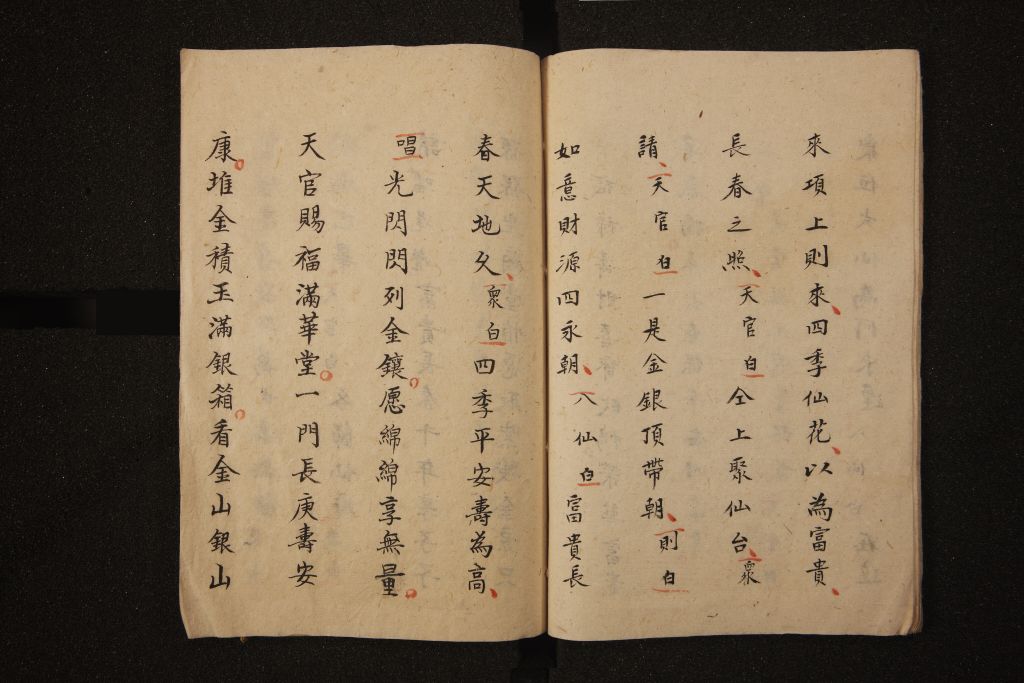 來項上則來四季仙花以為富貴
長春之照天官白仝上聚仙台眾
請天官白一是金銀頂帶朝則白
如意財源四永朝八仙白富貴長
春天地久眾白四季平安壽為高
唱光閃閃列金鑲愿綿綿享無量
天官賜福滿華堂一門長庚壽安
康堆金積玉滿銀箱看金山銀山